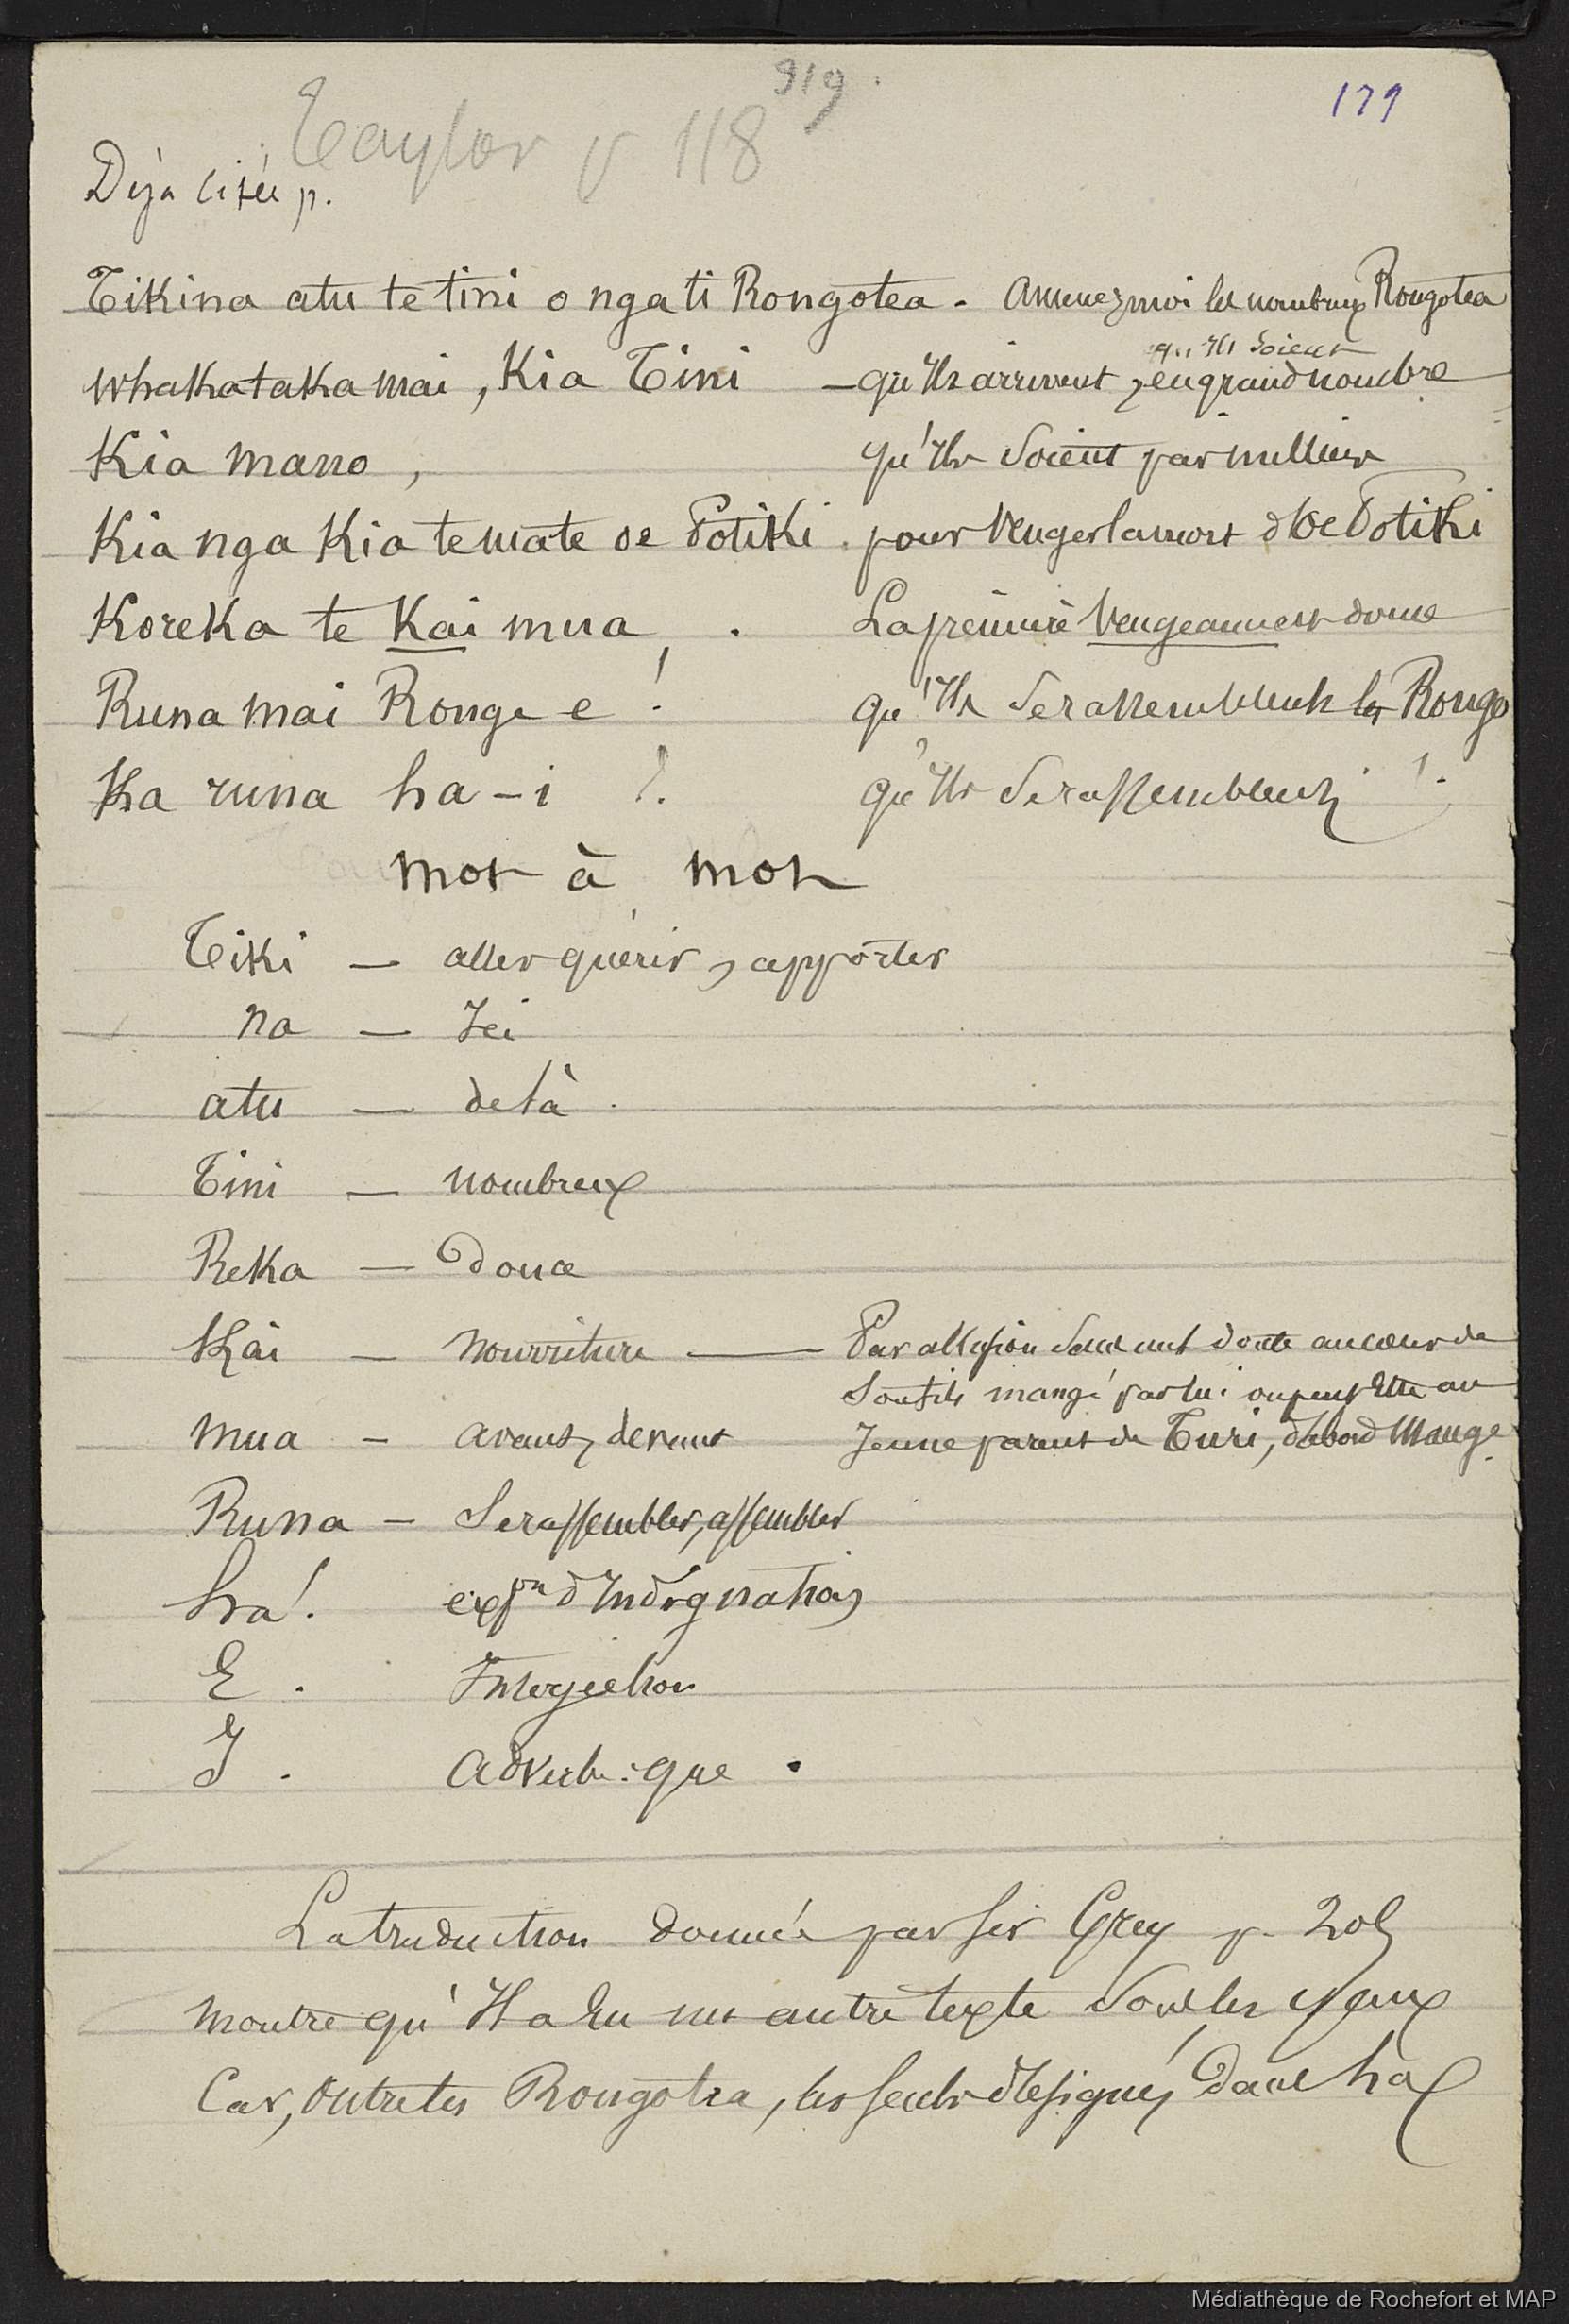 919.
179
Taylor p 118
Déja citée p.
Tikina atu te tini o nga ti Rongotea. Amenez moi les nombreux Rongotea
qu'Ils soient
whakataka mai, Kia Tini — qu'Ils arrivent, en grand nombre
Kia mano, qu'Ils soient par milliers
Kia nga Kia te mate oe Potiki. pour venger la mort d'Oe Potiki
Koreka te Kai mua, . La première vengeance est douce
Runa mai Rongo e! qu'Ils se rassemblent les Rongo
Ka runa ha-i !. qu'Ils se rassemblent !.
mot à mot
Tiki — aller quérir, apporter
na — Ici
atu — de là.
Tini — nombreux
Reka — Douce
Kai — nourriture — Par allusion sans nul doute au cœur de
son fils mangé par lui ou peut être au
mua — avant, devant Jeune parent de Turi, d'abord mangé.
Runa — Se rassembler, assembler
ha!. expon d'Indignation
E. Interjection
I. adverbe: que.
La traduction donnée par Sir Grey p. 208
montre qu'Il a Eu un autre texte sous les yeux
Car, outre les Rongotea, les seuls désignés dans ha